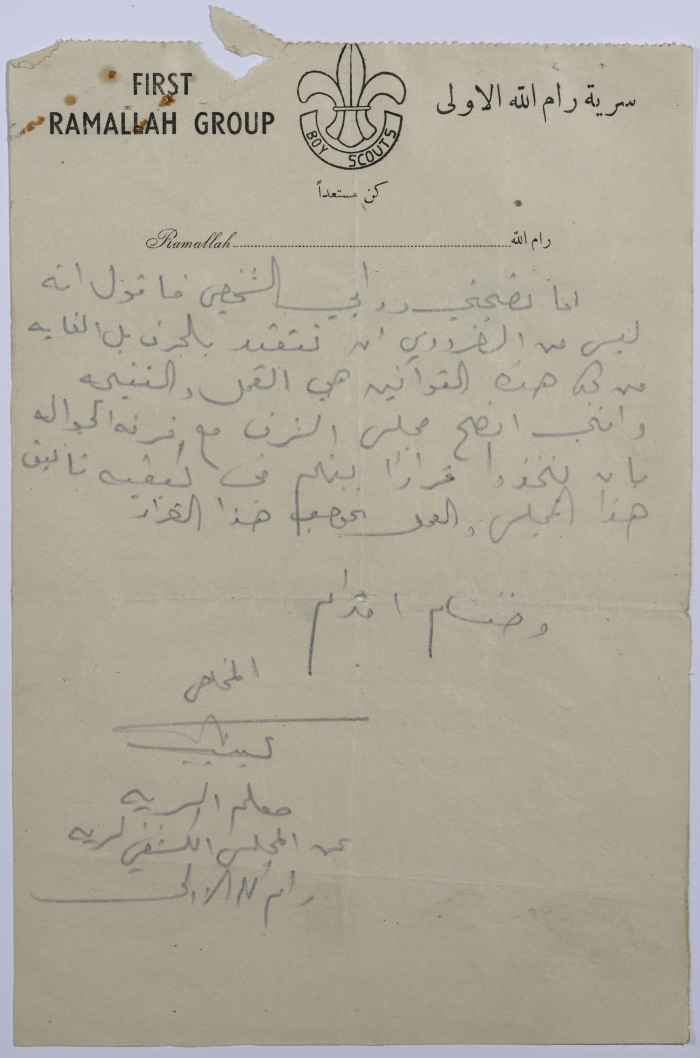 FIRST
RAMALLAH GROUP
BOY SCOUTS
سرية رام الله الاولى
كن مستعداً
Ramallah رام الله
اما نصيحتي ورأيي الشخصي فاقول انه
ليس من الضروري ان نتقيد بالحرف بل الغايه
من كل هذه القوانين هي العمل والنتيجه
وانني انصح مجلس الشرف مع فرقه الجواله
بان يتخذوا قرارًا بينهم في كيفيه تأليف
هذا المجلس والعمل بموجب هذا القرار
وختـام احترام
المخلص
معلم السريه
عن المجلس الكشفي لسريه
رام الله الاولى